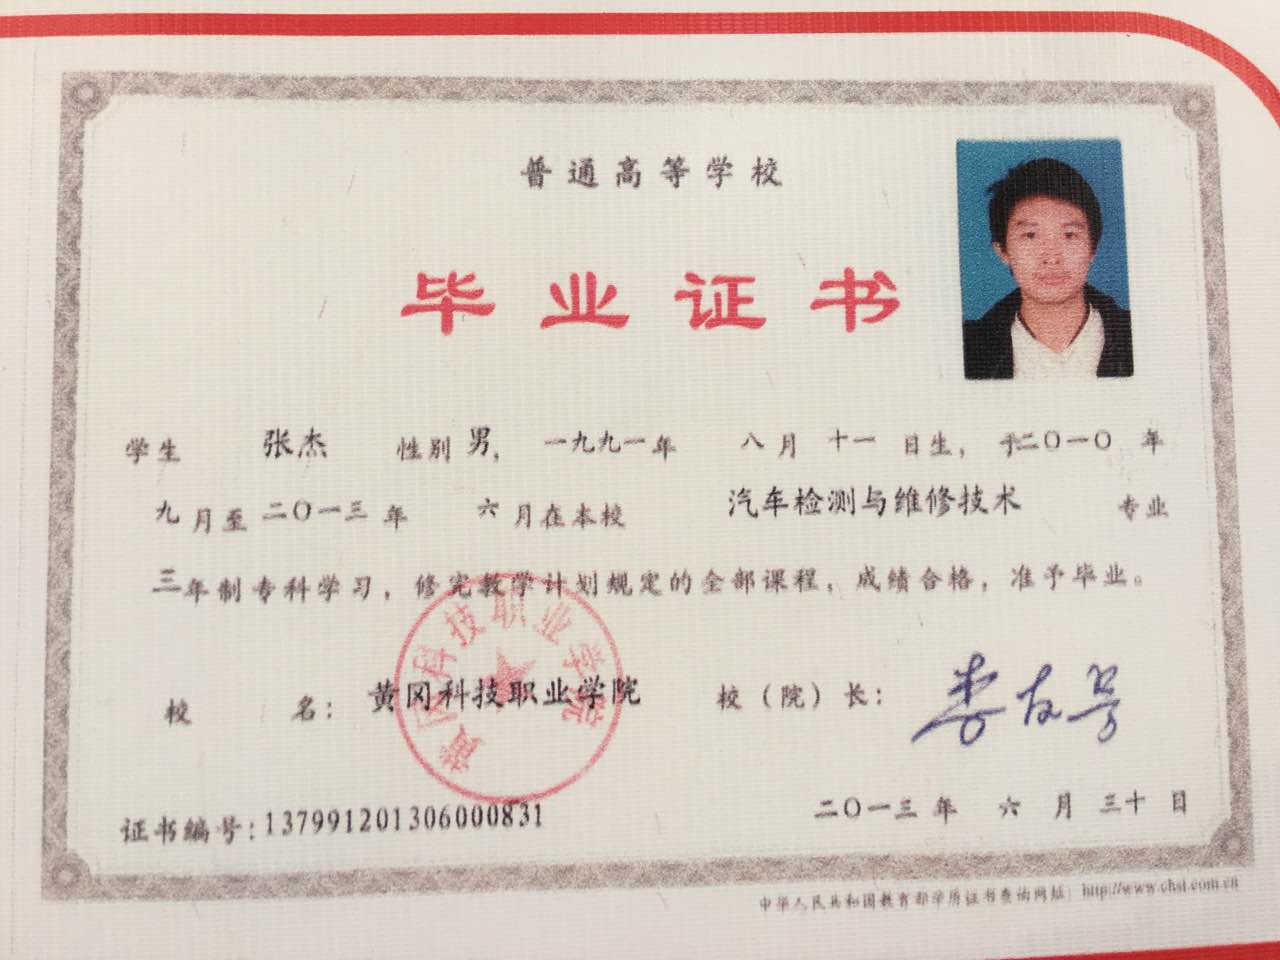 普通高等学校
毕业证书
学生 张杰 性别 男， 一九九一年 八月 十一 日生，于二〇一〇 年
九月至 二〇一三年 六月在本校 汽车检测与维修技术 专业
三年制专科学习，修完教学计划规定的全部课程，成绩合格，准予毕业。
黄冈科技职业学院
校 名：黄冈科技职业学院 校（院）长：
证书编号：137991201306000831 二〇一三年 六月 三十日
中华人民共和国教育部学历证书查询网址：http://www.chsi.com.cn